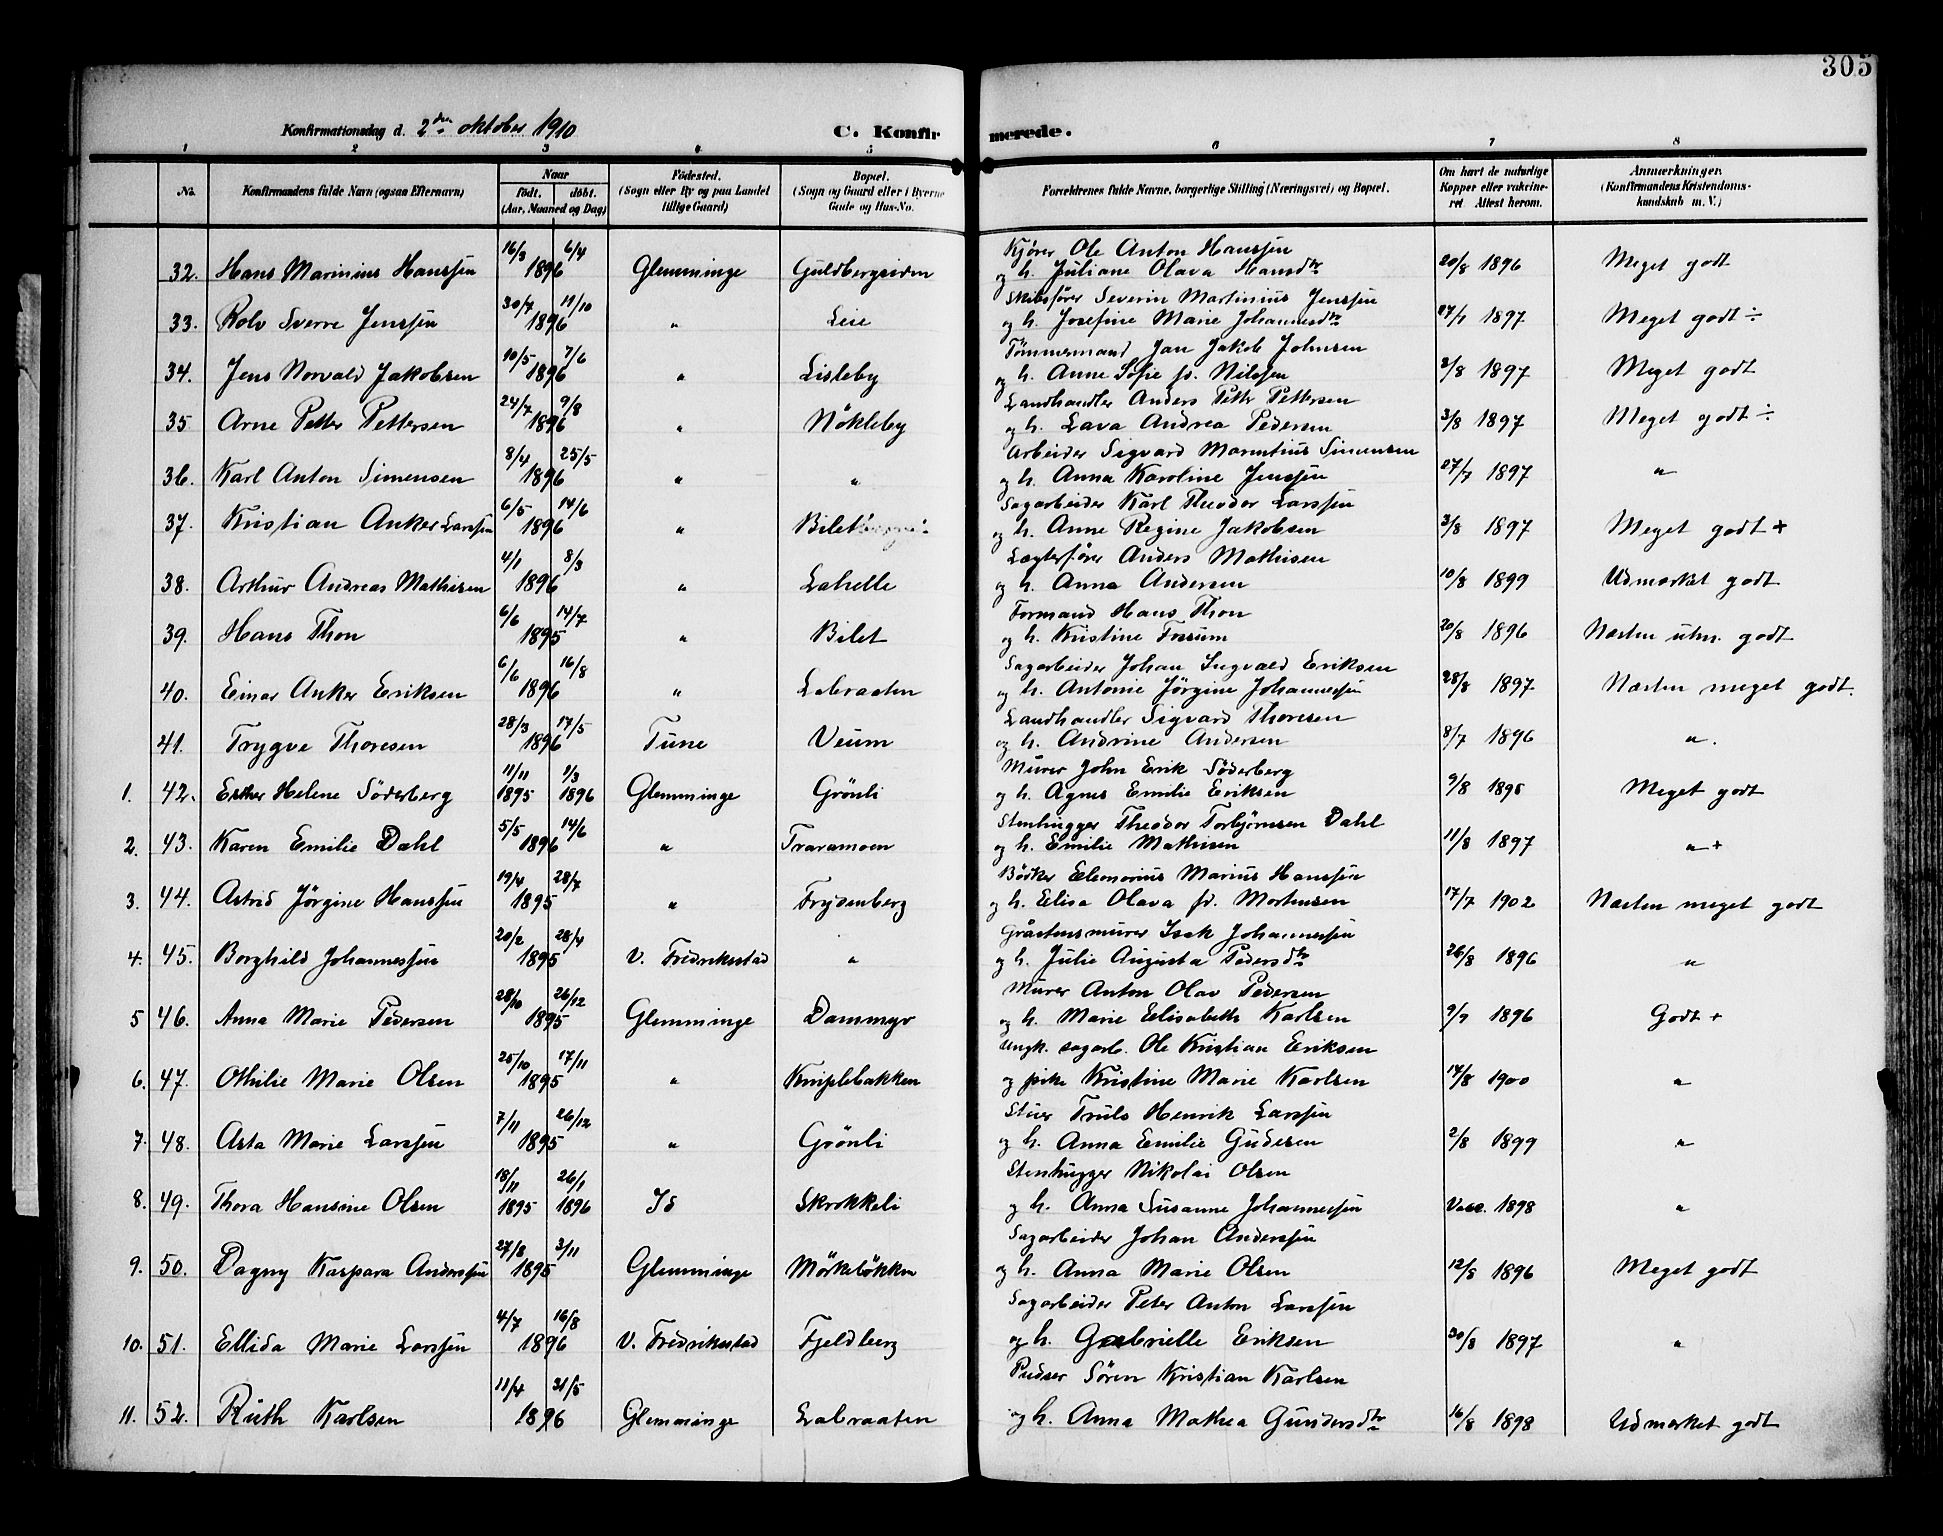 305
Konfirmationsdag d. 2den oktober 1910
C. Konfirmerede.
1 2 3 4 5 6 7 8
No. Konfirmandens fulde Navn (ogsaa Efternavn) Naar født. døbt. (Aar, Maaned og Dag) Fødested. (Sogn eller By og paa Landet tillige Gaard) Bopæl. (Sogn og Gaard eller i Byerne Gade og Hus-No. Forældrenes fulde Navne, borgerlige Stilling (Næringsvei) og Bopæl. Om havt de naturlige Kopper eller vakcineret. Attest herom. Anmærkninger. (Konfirmandens Kristendomskundskab m. V.)
Kjører Ole Anton Hanssen
32. Hans Marinius Hanssen 16/3 6/4 1896 Glemminge Guldbergsiden og h. Juliane Olava Hansdtr 20/8 1896 Meget godt
Skibsfører Severin Martinius Jenssen
33. Rolv Sverre Jenssen 30/7 11/10 1896 " Leie og h. Josefine Marie Johannesdtr 27/7 1897 Meget godt ÷
Tømmermand Jan Jakob Johnsen
34. Jens Norvald Jakobsen 10/5 7/6 1896 " Lisleby og h. Anne Sofie f. Nilssen 3/8 1897 Meget godt
Landhandler Anders Petter Pettersen
35 Arne Petter Pettersen 24/7 9/8 1896 " Nökleby og h. Lava Andrea Pedersen 3/8 1897 Meget godt ÷
Arbeider Sigvard Marentius Simensen
36. Karl Anton Simensen 8/4 25/5 1896 " " og h. Anna Karoline Jenssen 27/7 1897 "
Sagarbeider Karl Theodor Larssen
37. Kristian Anker Larssen 6/5 14/6 1896 " Bilet og h. Anne Regine Jakobsen 3/8 1897 Meget godt +
Lægterfører Anders Mathisen
38. Arthur Andreas Mathisen 4/1 8/3 1896 " Lahelle og h. Anna Andersen 10/8 1899 Udmærket godt
Formand Hans Thon
39. Hans Thon 6/6 14/7 1895 " Bilet og h. Kristine Fossum 20/8 1896 Næsten utm. godt
Sagarbeider Johan Ingvald Eriksen
40. Einar Anker Eriksen 6/6 16/8 1896 " Labraaten og h. Antonie Jörgine Johannessen 28/8 1897 Næsten meget godt.
Landhandler Sigvard Thoresen
41. Trygve Thoresen 28/3 17/5 1896 Tune Veum og h. Andrine Andersen 8/7 1896 ".
Murer John Erik Söderberg
1. 42. Esther Helene Söderberg 11/11 1895 1/3 1896 Glemminge Grönli og h. Agnes Emilie Eriksen 9/8 1898 Meget godt
Stenhugger Theodor Torbjørnsen Dahl
2. 43. Karen Emilie Dahl 5/5 14/6 1896 " Traramoen og h. Emilie Mathisen 11/8 1897 " +
Bödker Eleonorius Marius Hanssen
3. 44. Astrid Jörgine Hanssen 19/4 28/7 1895 " Frydenberg og h. Elisa Olava f. Mortensen 17/7 1902 Næsten meget godt
Gråstensmurer Isak Johannessen
4. 45. Borghild Johannessen 20/2 28/4 1895 V. Fredrikstad " og h. Julie Augusta Pedersdtr 26/8 1896 "
Murer Anton Olav Pedersen
5 46. Anna Marie Pedersen 28/10 26/12 1895 Glemminge Dammyr og h. Marie Elisabeth Karlsen 9/7 1896 Godt +
Ungk. sagarb. Ole Kristian Eriksen
6. 47. Othilie Marie Olsen 25/10 17/11 1895 " Kniplebakken og pike Kristine Marie Karlsen 14/8 1900 "
Stuer Truls Henrik Larssen
7. 48. Asta Marie Larssen 7/11 26/12 1895 " Grönli og h. Anna Emilie Gudesen 2/8 1899 "
Stenhugger Nikolai Olsen
8. 49. Thora Hansine Olsen 18/11 1895 26/1 1896 Id Skrokkeli og h. Anna Susanne Johannessen Vacc. 1898 "
Sagarbeider Johan Anderssen
9. 50. Dagny Kaspara Anderssen 27/8 3/11 1895 Glemminge Mörkelökken og h. Anna Marie Olsen 12/8 1896 Meget godt
Sagarbeider Peter Anton Larssen
10. 51. Ellida Marie Larssen 4/7 16/8 1896 V. Fredrikstad Fjeldberg og h. Gabrielle Eriksen 30/8 1897 "
Pudser Sören Kristian Karlsen
11. 52. Ruth Karlsen 11/4 31/5 1896 Glemminge Labraaten og h. Anna Mathea Gundersdtr 16/8 1898 Udmærket godt